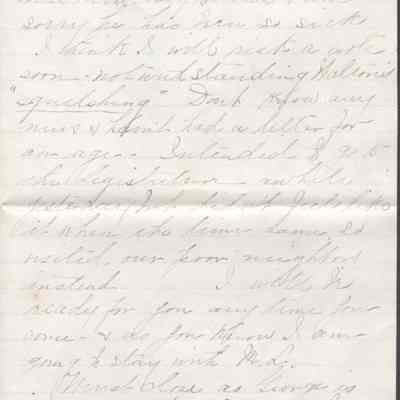 sorry he has been so sick
I think I will risk a note
soon - notwithstanding Walton's
"squelching" Don't know any
news & haven't had a letter for
an age - Intended to go to
the Legislature awhile
yesterday but didn't feel like
it when the time came, so
visited our poor neighbors
instead. I will be
ready for you any time you
come - & as you know I am
going to stay with M.L.
Must close as George is